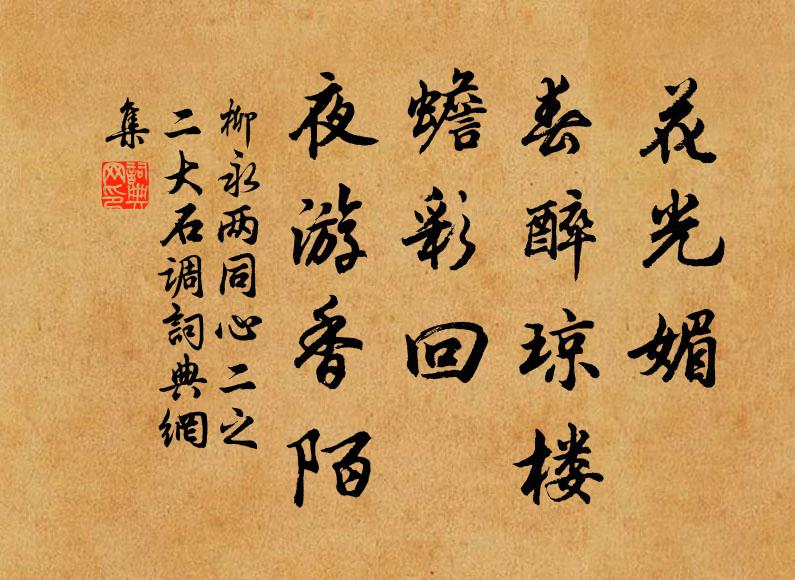 花光媚
春醉琼楼
蟾彩回
夜游香陌
柳永两同心二之
二大石调詞典網
集
詞典
网印